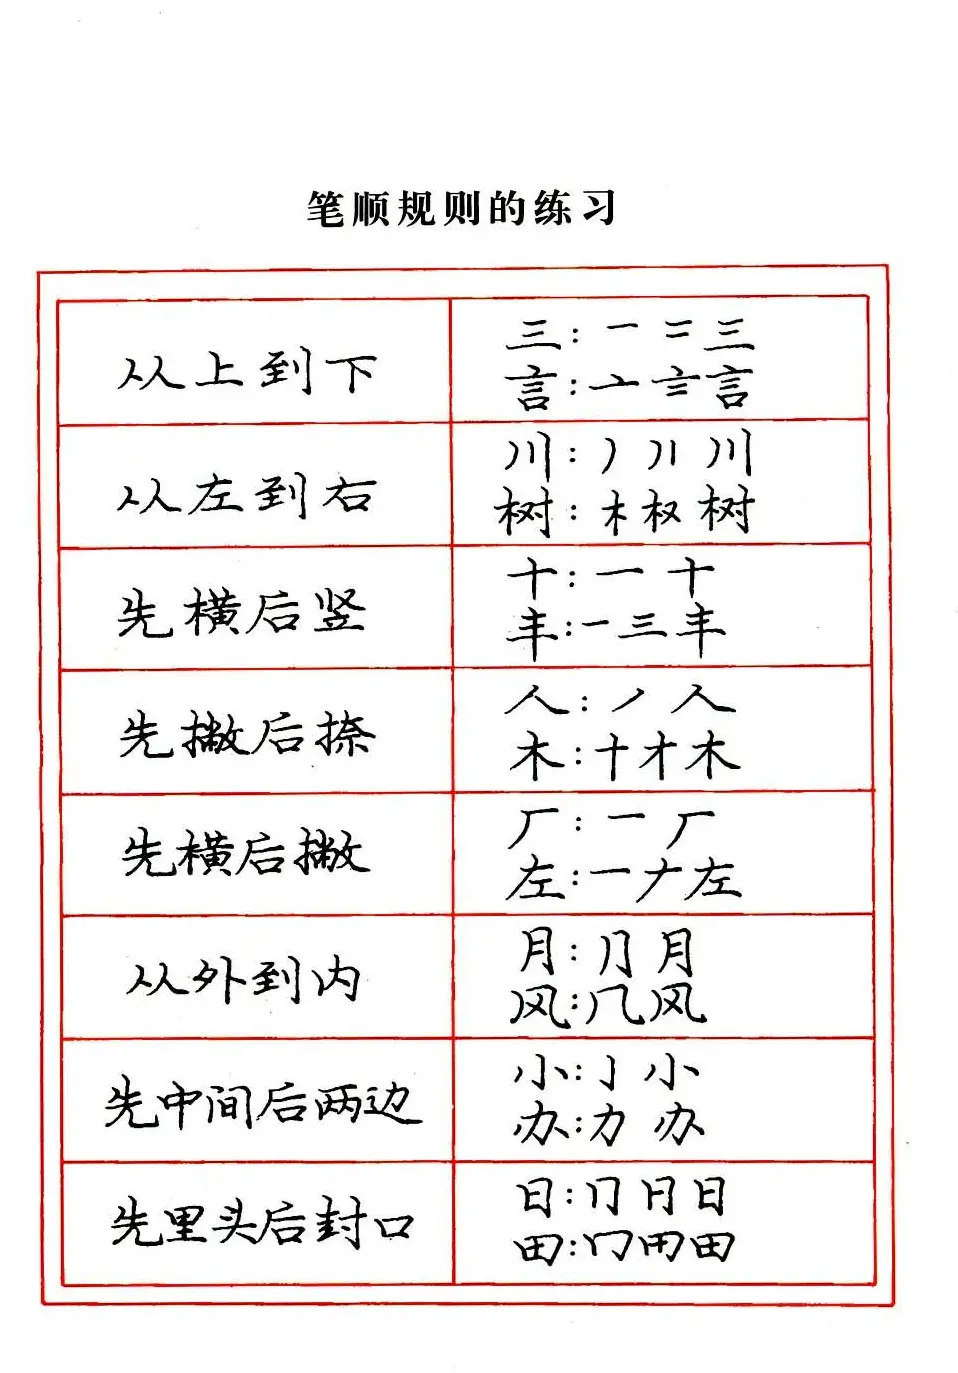 笔顺规则的练习
从上到下
三：一 二 三
言：亠 訁 言
从左到右
川：丿 川 川
树：木 权 树
先横后竖
十：一 十
丰：一 三 丰
先撇后捺
人：丿 人
木：十 才 木
先横后撇
厂：一 厂
左：一 𠂇 左
从外到内
月：⺆ 月
风：几 风
先中间后两边
小：亅 小
办：力 办
先里头后封口
日：冂 日 日
田：冂 田 田